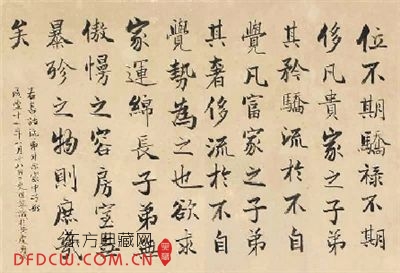 位不期驕祿不期
侈凡貴家之子弟
其矜驕流於不自
覺凡富家之子弟
其奢侈流於不自
覺勢為之也欲求
家運綿長子弟無
傲慢之容房室無
暴殄之物則庶幾
矣
咸豐十一年八月十八日
东方典藏网
DFDCW.COM.CN